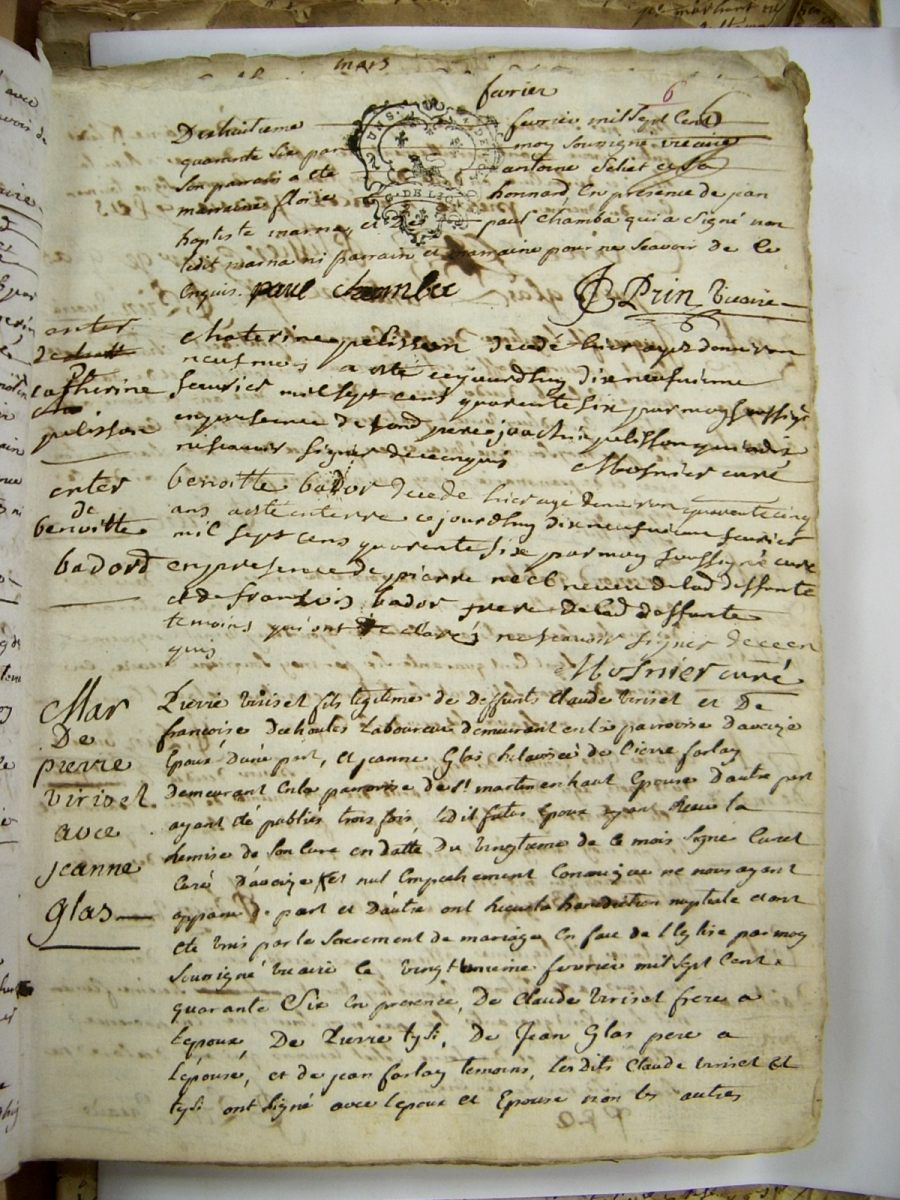 mars
fevrier
6
6
Dixhuitieme fevrier mil sept cent
quarante six par moy soussigné vicaire
Son parrain a eté antoine
marraine honnard En presence de jean
baptiste marna, et de paul Chamba qui a Signé non
ledit marna ni parrain et marraine pour ne Scavoir de ce
Enquis. paul chamba Prin Vicaire
enter
Catherine
pelisson
Chaterine pelisson decedé hier agée denviron
neuf mois a eté cejourdhuy dixneufieme
fevrier mil sept cens quarente six par moy soussigné
en presence de son pere joachin pelisson qui a dit
ne scavoir signer de ce enquis Mosnier curé
enter
de
benoitte
badord
benoitte bador decede hier agé denviron quarente cinq
ans a eté enterre cejourdhuy dixneufieme fevrier
mil sept cens quarente six par moy soussigné curé
en presence de pierre neel neveu de lad deffunte
et de françois bador frere de lad deffunte
temoins qui ont declarés ne scavoir signer de ce en
quis Mosnier curé
Mar
De
pierre
Viriset
avec
jeanne
Glas
Pierre Viriset fils legitime de deffunts Claude Viriset et De
françoise Laboureur demeurant en la parroisse d'avaize
Epoux d'une part, et jeanne Glas delaissée de pierre farlay
demeurant En la parroisse de St martin en haut Epouse d'autre part
ayant eté publiés trois fois ledit futur Epoux ayant Receu la
Remise de son Curé en datte du vingtieme de ce mois Signé
Curé d'avaize Et nul Empechement Canonique ne nous ayant
apparu de part et d'autre ont Receu la benediction nuptiale et ont
eté Unis par le Sacrement de mariage En face de l'Eglise par moy
Soussigné Vicaire le vingt fevrier mil sept Cent
quarante Six En presence, De Claude Viriset frere a
L'epoux De Pierre tysi, De Jean Glas pere a
L'epouse, et de jean farlay temoins, les dits Claude Viriset et
tysi ont Signé avec l'epoux et Epouse non les autres